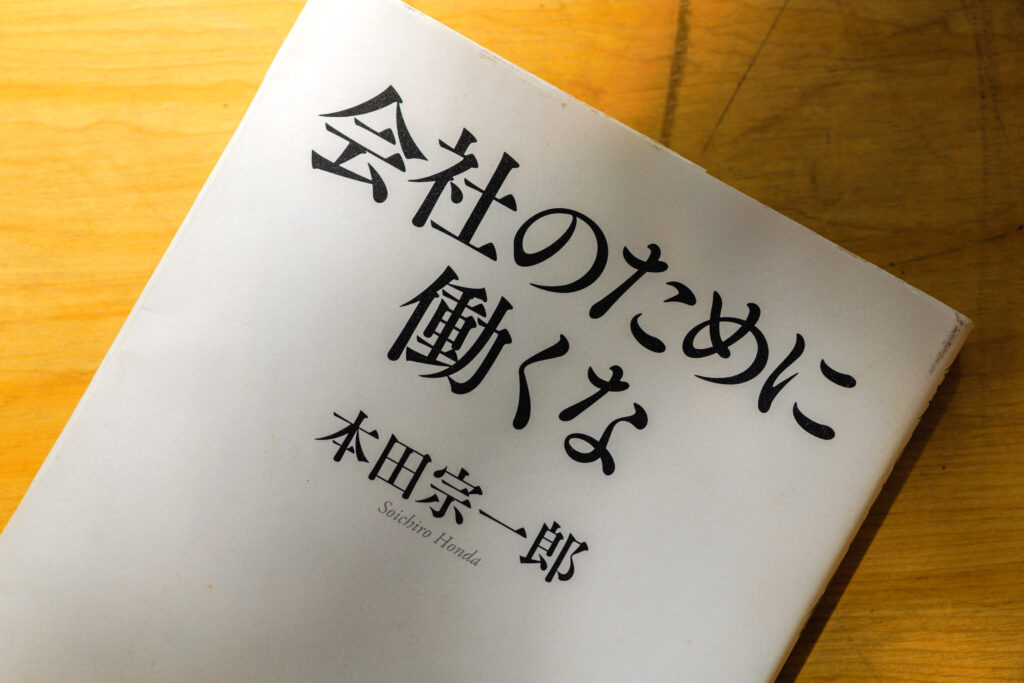 会社のために
働くな
本田宗一郎
Soichiro Honda